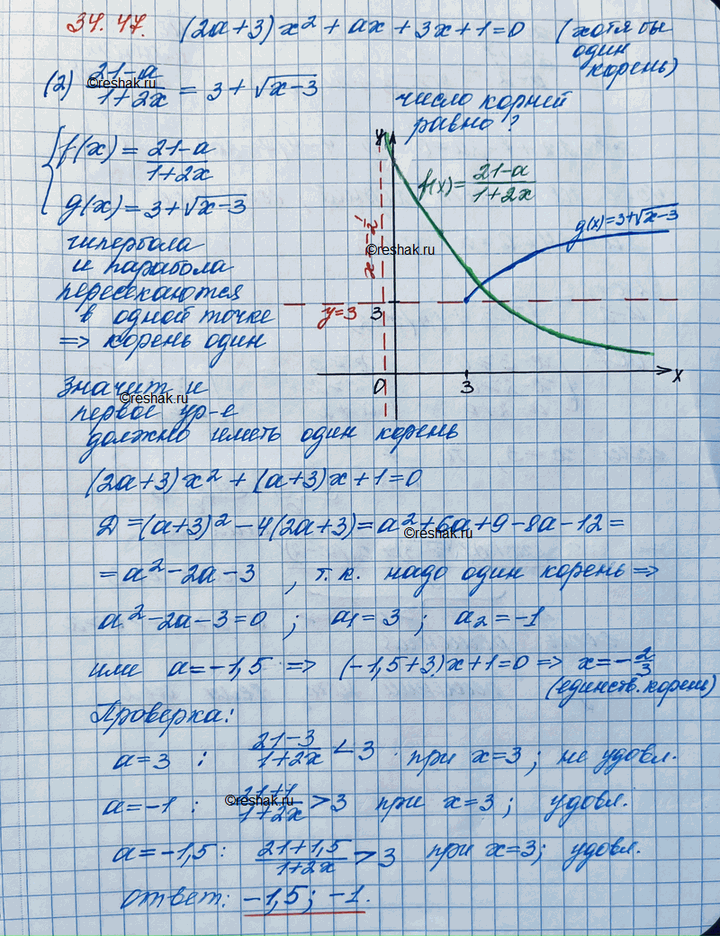 34.47. (2a+3)x² + ax + 3x + 1 = 0 (хотя бы
один
корень)
(2) 21-a / 1+2x = 3 + √x-3
число корней
равно?
f(x) = 21-a / 1+2x
g(x) = 3+√x-3
гипербола
и парабола
пересекаются
в одной точке
=> корень один
y
f(x) = 21-a / 1+2x
g(x)=3+√x-3
x = -1/2
y=3 3
0 3 x
Значит и
первое ур-е
должно иметь один корень
(2a+3)x² + (a+3)x + 1 = 0
Д = (a+3)² - 4(2a+3) = a² + 6a + 9 - 8a - 12 =
= a² - 2a - 3 , т.к. надо один корень =>
a² - 2a - 3 = 0 ; a₁ = 3 ; a₂ = -1
или a = -1,5 => (-1,5+3)x + 1 = 0 => x = -2/3
(единств. корень)
Проверка:
a = 3 : 21-3 / 1+2x < 3 при x=3 ; не удовл.
a = -1 : 21+1 / 1+2x > 3 при x=3 ; удовл.
a = -1,5 : 21+1,5 / 1+2x > 3 при x=3; удовл.
Ответ: -1,5 ; -1.
©reshak.ru
©reshak.ru
©reshak.ru
©reshak.ru
©reshak.ru